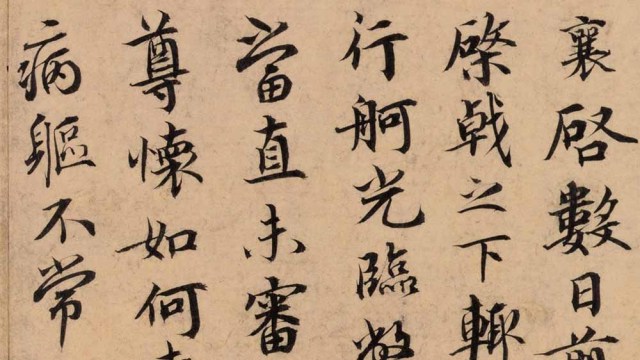 襄啓數日前
棨戟之下輙
行舸光臨敝
當直未審
尊懷如何
病軀不常